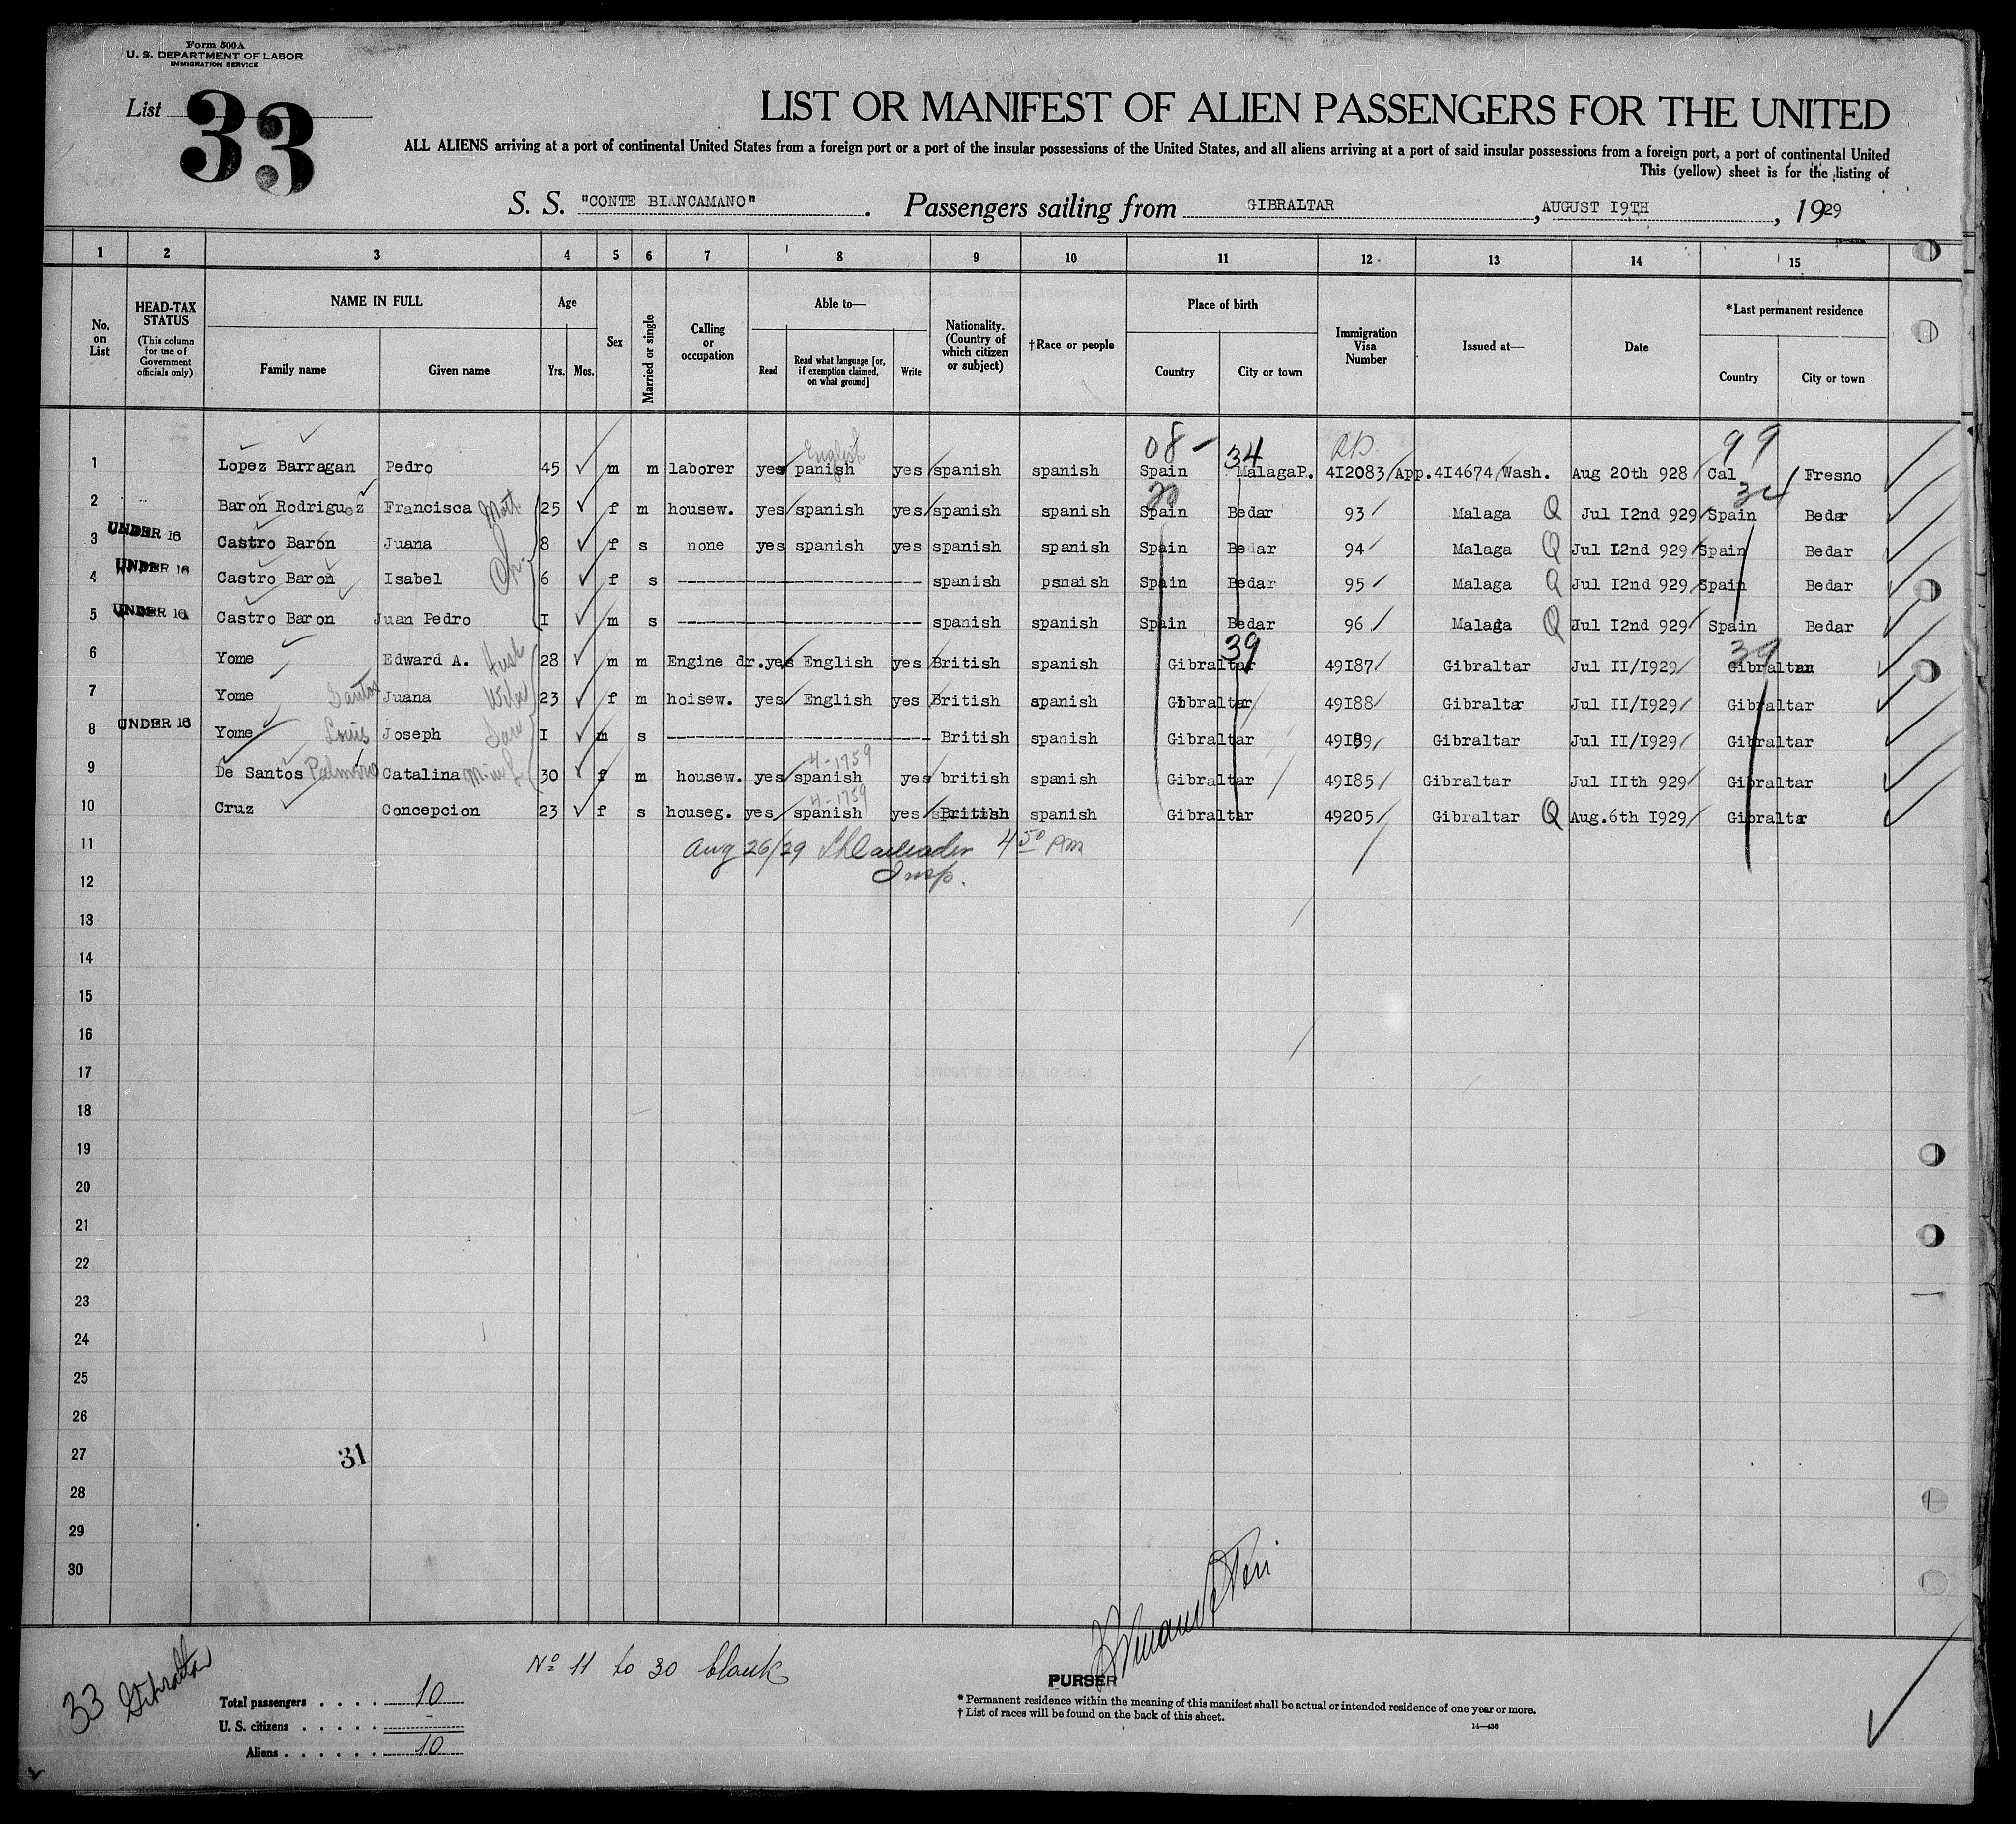 Form 500A
U. S. DEPARTMENT OF LABOR
IMMIGRATION SERVICE
List 33
LIST OR MANIFEST OF ALIEN PASSENGERS FOR THE UNITED
ALL ALIENS arriving at a port of continental United States from a foreign port or a port of the insular possessions of the United States, and all aliens arriving at a port of said insular possessions from a foreign port, a port of continental United
This (yellow) sheet is for the listing of
S. S. "CONTE BIANCAMANO". Passengers sailing from GIBRALTAR, AUGUST I9TH, 1929
1 2 3 4 5 6 7 8 9 10 11 12 13 14 15
No. on List
HEAD-TAX STATUS (This column for use of Government officials only)
NAME IN FULL Family name Given name
Age Yrs. Mos.
Sex
Married or single
Calling or occupation
Able to— Read Read what language [or, if exemption claimed, on what ground] Write
Nationality. (Country of which citizen or subject)
†Race or people
Place of birth Country City or town
Immigration Visa Number
Issued at—
Date
*Last permanent residence Country City or town
English 08- 34 99
1 Lopez Barragan Pedro 45 m m laborer yes panish yes spanish spanish Spain MalagaP. 4I2083/App.4I4674/Wash. Aug 20th 928 Cal Fresno
34
2 Baron Rodriguez Francisca Moth 25 f m housew. yes spanish yes spanish spanish Spain Bedar 93 Malaga Q Jul I2nd 929 Spain Bedar
UNDER 16
3 Castro Baron Juana 8 f s none yes spanish yes spanish spanish Spain Bedar 94 Malaga Q Jul I2nd 929 Spain Bedar
UNDER 16
4 Castro Baron Isabel Ch 6 f s spanish psnaish Spain Bedar 95 Malaga Q Jul I2nd 929 Spain Bedar
UNDER 16
5 Castro Baron Juan Pedro I m s spanish spanish Spain Bedar 96 Malaga Q Jul I2nd 929 Spain Bedar
39 39
6 Yome Edward A. Husb 28 m m Engine dr. yes English yes British spanish Gibraltar 49I87 Gibraltar Jul II/I929 Gibraltar
7 Yome Santos Juana Wife 23 f m hoisew. yes English yes British spanish Gibraltar 49I88 Gibraltar Jul II/I929 Gibraltar
UNDER 16
8 Yome Louis Joseph I m s British spanish Gibraltar 49I89 Gibraltar Jul II/I929 Gibraltar
4-1759
9 De Santos Palmero Catalina M-in-L 30 f m housew. yes spanish yes british spanish Gibraltar 49I85 Gibraltar Jul IIth 929 Gibraltar
4-1759
10 Cruz Concepcion 23 f s houseg. yes spanish yes British spanish Gibraltar 49205 Gibraltar Q Aug.6th I929 Gibraltar
11 Aug 26/29 4 50 PM
Insp.
12
13
14
15
16
17
18
19
20
21
22
23
24
25
26
27
31
28
29
30
33 Gibraltar
Nº 11 to 30 blank
PURSER
Total passengers . . . . 10
U. S. citizens . . . . . -
Aliens . . . . . . 10
* Permanent residence within the meaning of this manifest shall be actual or intended residence of one year or more.
† List of races will be found on the back of this sheet.
14—430